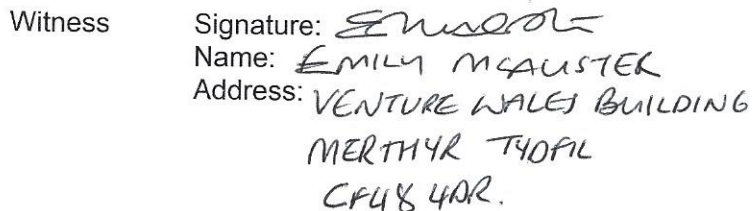 Witness Signature:
Name: EMILY MCALISTER
Address: VENTURE WALES BUILDING
MERTHYR TYDFIL
CF48 4DR.